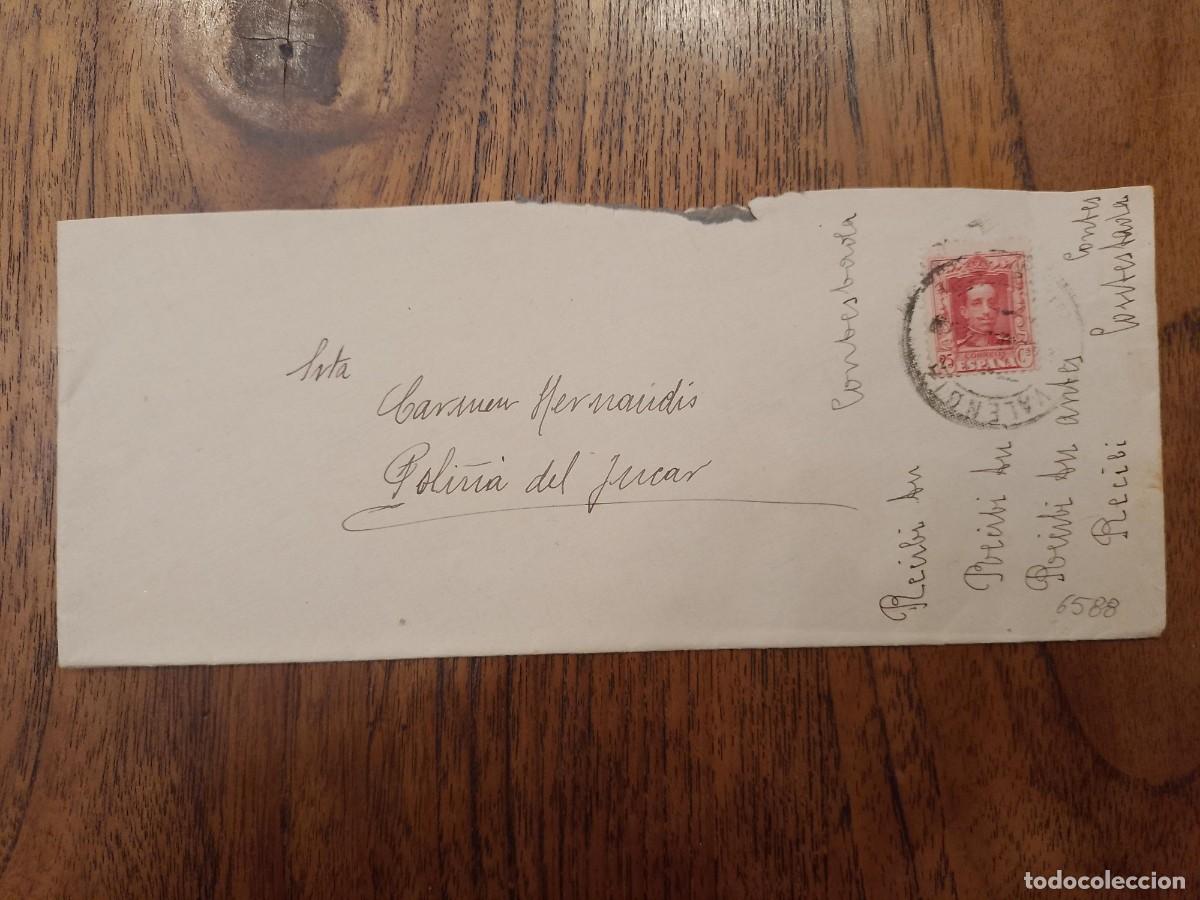 Srta
Carmen Hernandis
Poliñá del Jucar
Contestada
Recibi su
Recibi su
Recibi su antes
Contes
Recibi
Contestada
6588
25 CORREOS Cs
ESPAÑA
VALENCIA
todocoleccion